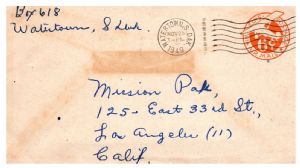 Box 618
Watertown, S Dak
WATERTOWN, S. DAK.
NOV 25
6¢
Mission Pak,
125 - East 33rd St.,
Los Angeles (11)
Calif.